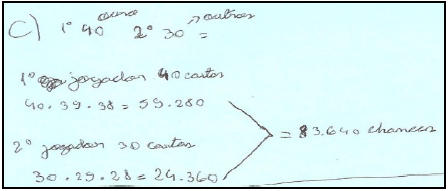 C) 1º 40 ouro 2º 30 = outras
1º jogador 40 cartas
40.39.38 = 59.280
2º jogador 30 cartas
30.29.28 = 24.360
= 83.640 chances